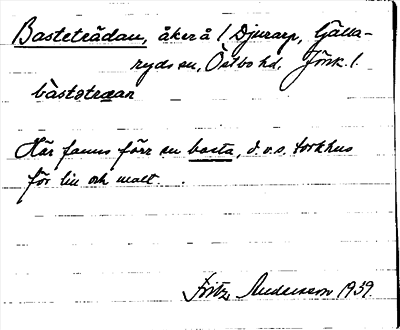 Basteträdan, åker å / Djurarp, Gälla-
ryds sn, Östbo hd. Jönk. l.
bàststræan
Här fanns förr en basta, d.v.s. torkhus
för lin och malt.
Fritz Andersson 1939.